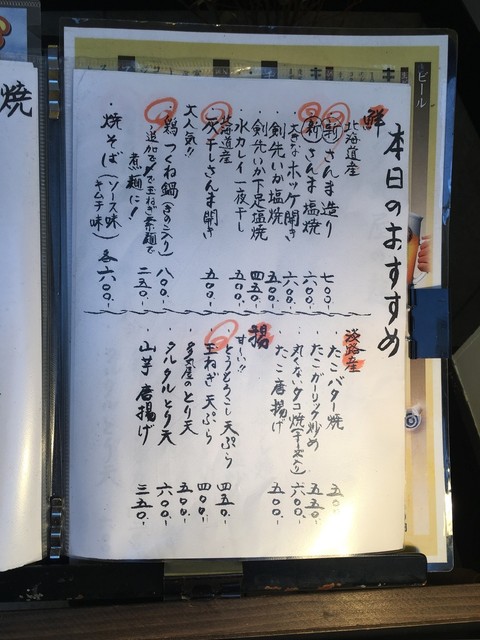 本日のおすすめ
鮮
北海道産
新さんま造り 七〇〇-
新さんま塩焼 六〇〇-
大きなホッケ開き 六〇〇-
剣先いか塩焼 五〇〇-
剣先いか下足塩焼 四五〇-
水カレイ一夜干し 五〇〇-
北海道産
灰干しさんま開き 五〇〇-
大人気!!
鶏つくね鍋(きのこ入り) 八〇〇-
追加で玉ねぎ素麺で 二五〇-
煮麺に!
焼そば(ソース味 キムチ味) 各六〇〇-
淡路産
たこバター焼 五〇〇-
たこガーリック炒め 五五〇-
丸くないタコ焼(チーズ入り) 六〇〇-
たこ唐揚げ 五〇〇-
揚
すーい!!
とうもろこし天ぷら 四五〇-
玉ねぎ天ぷら 四〇〇-
のとり天 五〇〇-
タルタルとり天 六〇〇-
山芋唐揚げ 三五〇-
焼
ビール